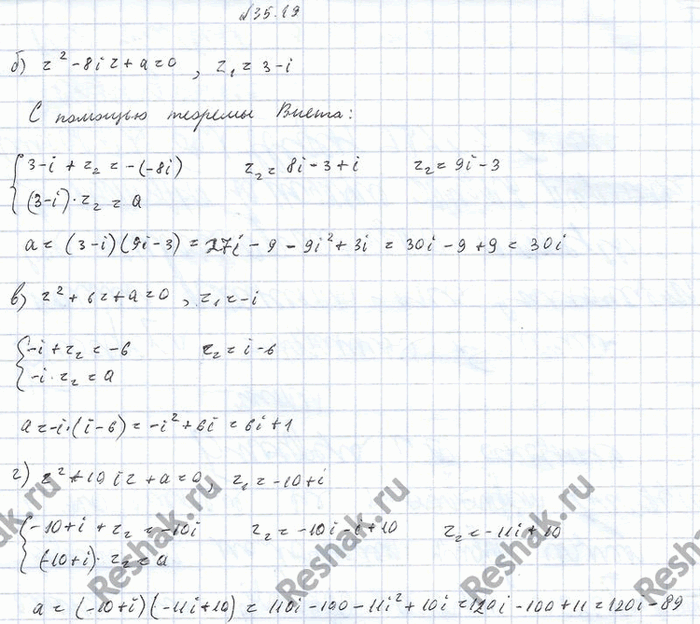 №35.19
б) z² - 8iz + a = 0 , z₁ = 3 - i
С помощью теоремы Виета:
{ 3 - i + z₂ = -(-8i)   z₂ = 8i - 3 + i   z₂ = 9i - 3
(3 - i) · z₂ = a
a = (3 - i)(9i - 3) = 27i - 9 - 9i² + 3i = 30i - 9 + 9 = 30i
в) z² + 6z + a = 0 , z₁ = -i
{ -i + z₂ = -6   z₂ = i - 6
-i · z₂ = a
a = -i · (i - 6) = -i² + 6i = 6i + 1
г) z² + 10iz + a = 0, z₁ = -10 + i
{ -10 + i + z₂ = -10i   z₂ = -10i - i + 10   z₂ = -11i + 10
(-10 + i) · z₂ = a
a = (-10 + i)(-11i + 10) = 110i - 100 - 11i² + 10i = 120i - 100 + 11 = 120i - 89
Reshak.ru
Reshak.ru
Reshak.ru
Reshak.ru